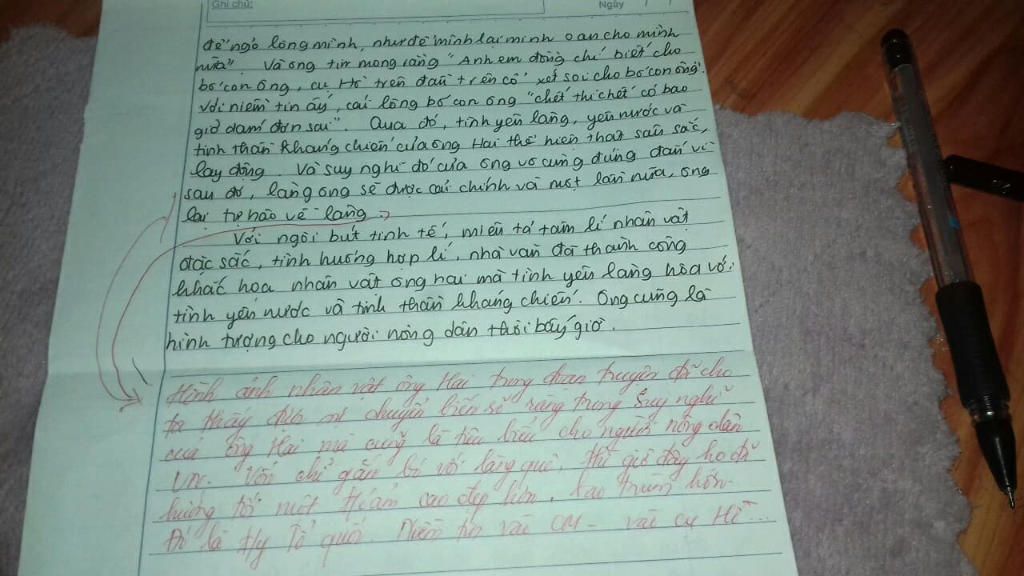 Ghi chú:
Ngày / /
để ngỏ lòng mình, như để mình lại minh oan cho mình
nữa". Và ông tin mong rằng "Anh em đồng chí biết cho
bố con ông, cụ Hồ trên đầu trên cổ xét soi cho bố con ông".
Với niềm tin ấy, cái lòng bố con ông "chết thì chết có bao
giờ dám đơn sai". Qua đó, tình yêu làng, yêu nước và
tinh thần kháng chiến của ông Hai thể hiện thật sâu sắc,
lay động. Và suy nghĩ đó của ông vô cùng đúng đắn vì
sau đó, làng ông sẽ được cải chính và một lần nữa, ông
lại tự hào về làng.
Với ngòi bút tinh tế, miêu tả tâm lí nhân vật
đặc sắc, tình huống hợp lí, nhà văn đã thành công
khắc họa nhân vật ông hai mà tình yêu làng hòa với
tình yêu nước và tinh thần kháng chiến. Ông cũng là
hình tượng cho người nông dân thời bấy giờ.
Hình ảnh nhân vật ông Hai trong đoạn truyện đã cho
ta thấy được sự chuyển biến rõ ràng trong suy nghĩ
của ông Hai mà cũng là tiêu biểu cho người nông dân
VN. Vốn chỉ gắn bó với làng quê, thì giờ đây họ đã
hướng tới một t/cảm cao đẹp hơn, bao trùm hơn.
Đó là t/y Tổ quốc. Niềm tin vào CM - vào cụ Hồ...